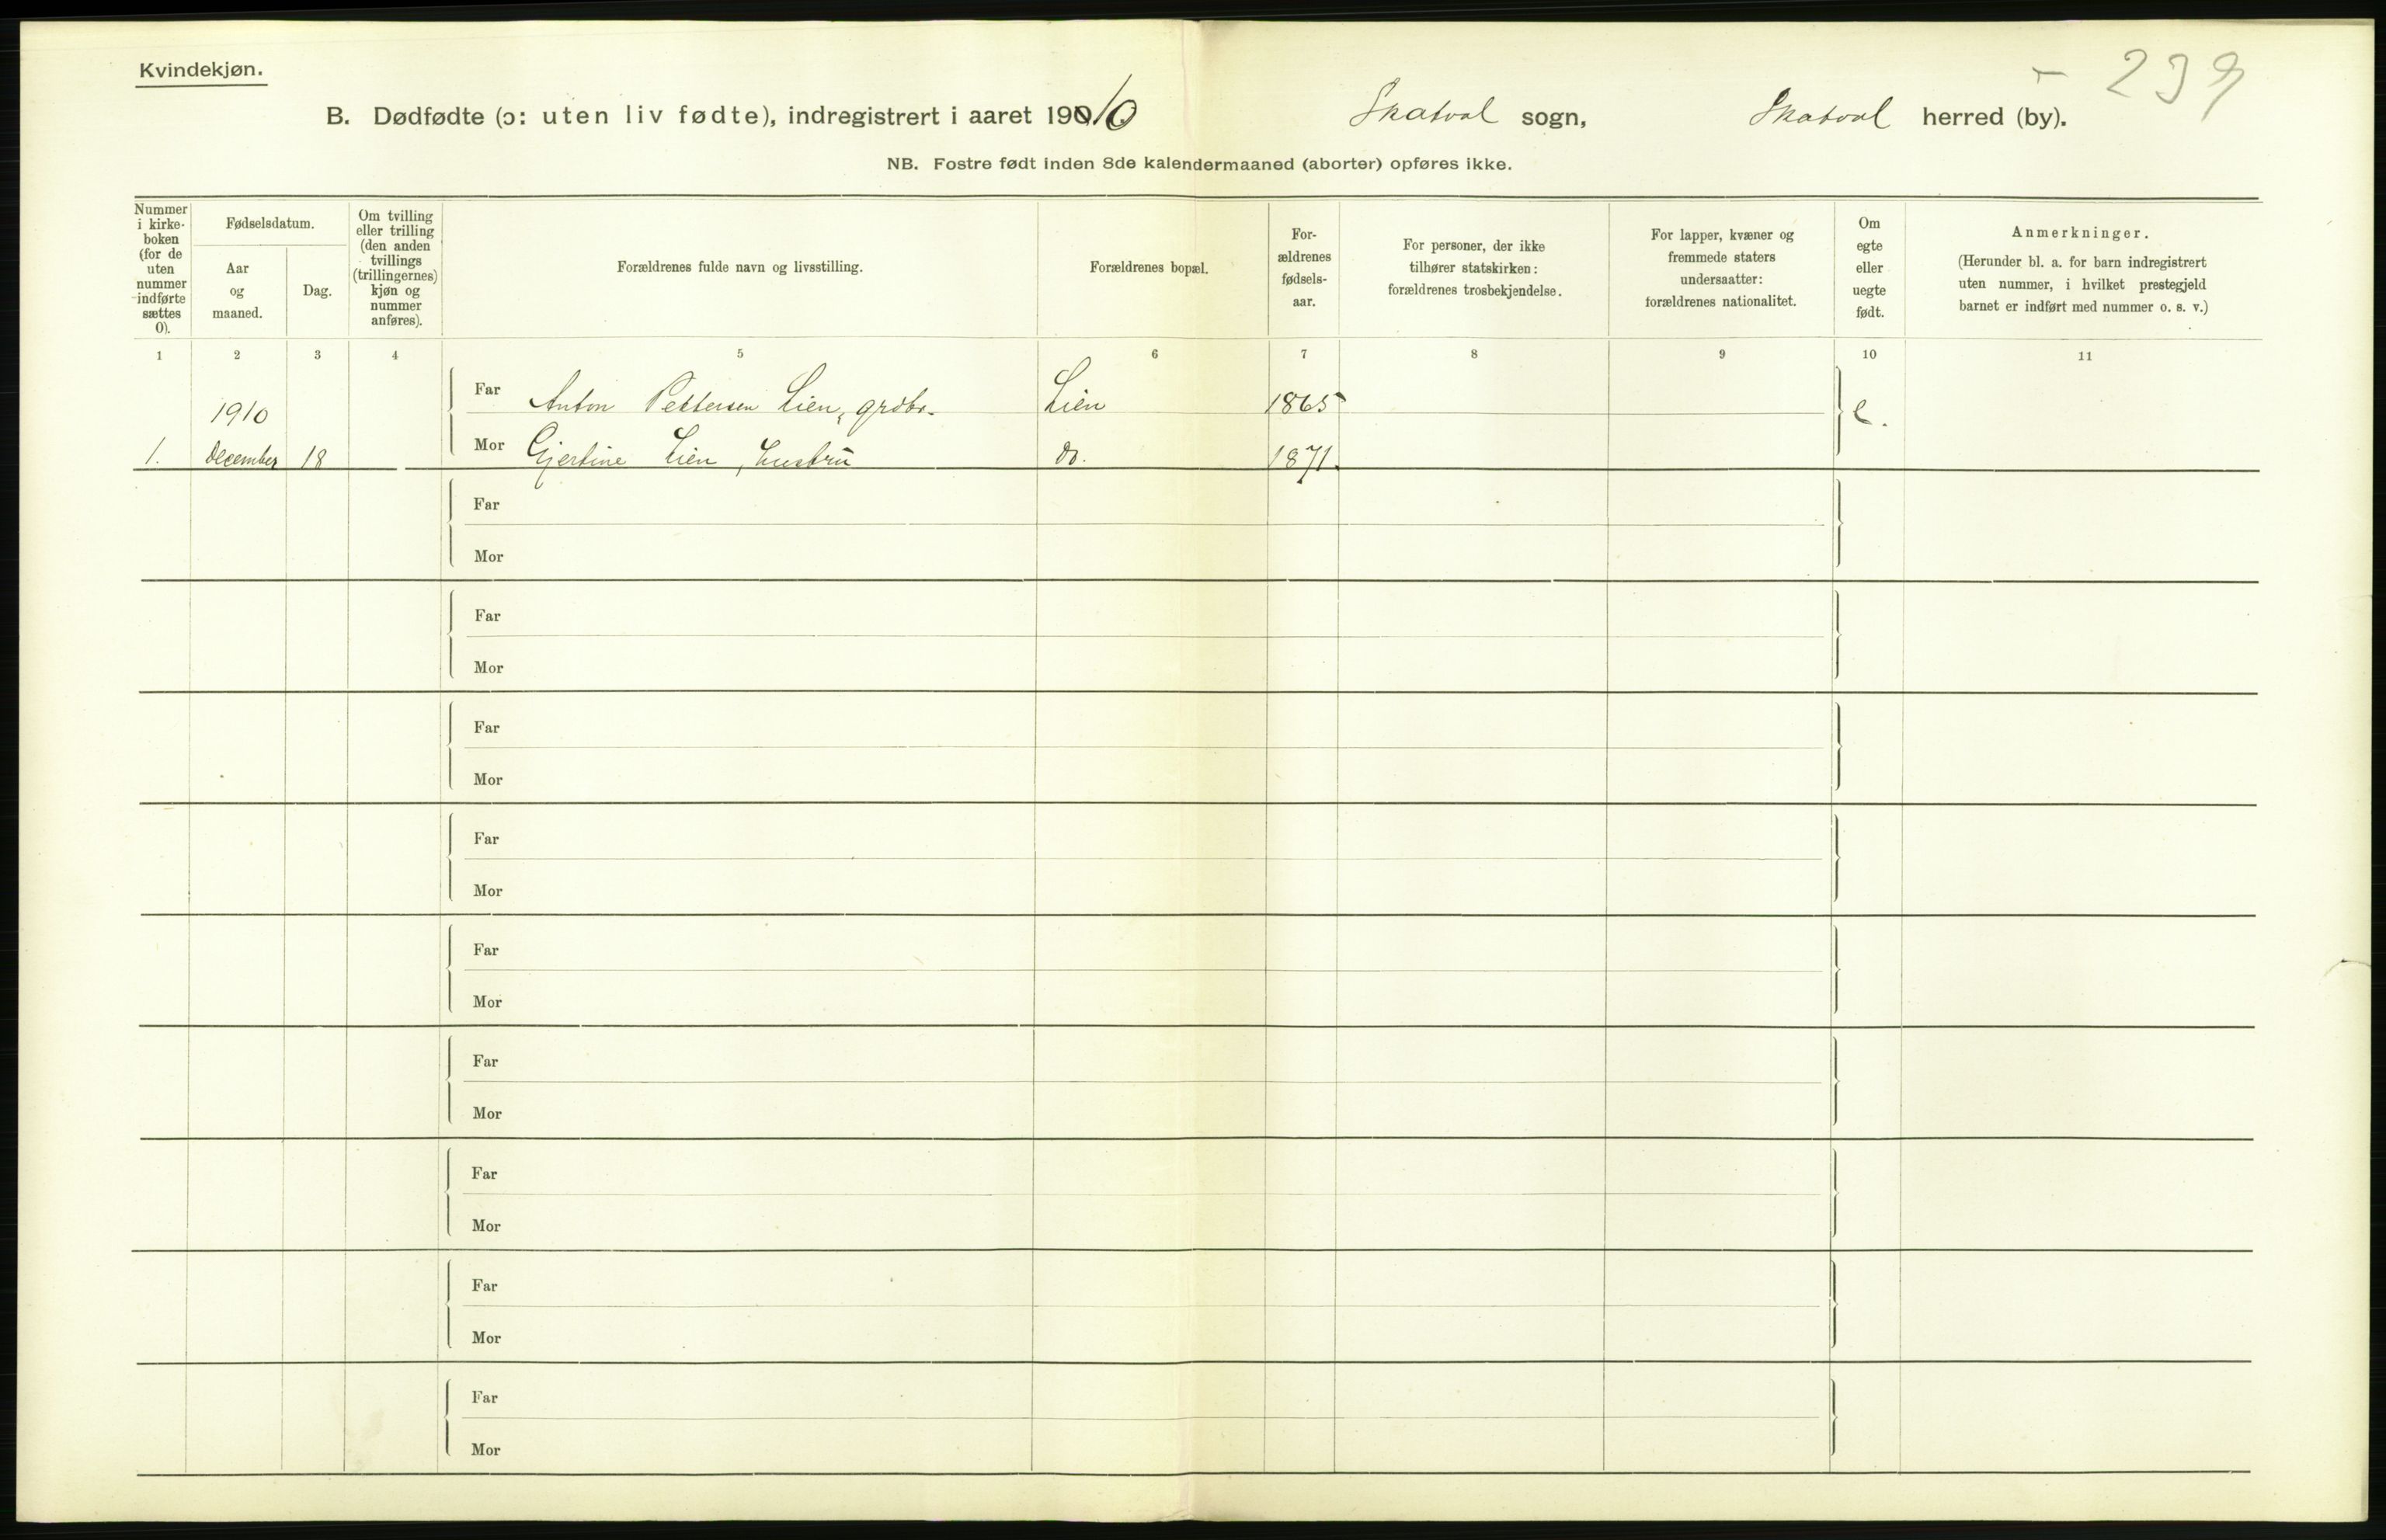 Kvindekjøn.
239
B. Dødfødte (ɔ: uten liv fødte), indregistrert i aaret 1910 Skatval sogn, Skatval herred (by).
NB. Fostre født inden 8de kalendermaaned (aborter) opføres ikke.
Nummer
i kirke-
boken
(for de
uten
nummer
indførte
sættes
0).
Fødselsdatum.
Aar
og
maaned.
Dag.
Om tvilling
eller trilling
(den anden
tvillings
(trillingernes)
kjøn og
nummer
anføres).
Forældrenes fulde navn og livsstilling.
Forældrenes bopæl.
For-
ældrenes
fødsels-
aar.
For personer, der ikke
tilhører statskirken:
forældrenes trosbekjendelse.
For lapper, kvæner og
fremmede staters
undersaatter:
forældrenes nationalitet.
Om
egte
eller
uegte
født.
Anmerkninger.
(Herunder bl. a. for barn indregistrert
uten nummer, i hvilket prestegjeld
barnet er indført med nummer o. s. v.)
1 2 3 4 5 6 7 8 9 10 11
1910 Far Anton Pettersen Lien, grdbr. Lien 1865 e.
1. December 18 Mor Gjertine Lien, hustru do. 1871.
Far
Mor
Far
Mor
Far
Mor
Far
Mor
Far
Mor
Far
Mor
Far
Mor
Far
Mor
Far
Mor